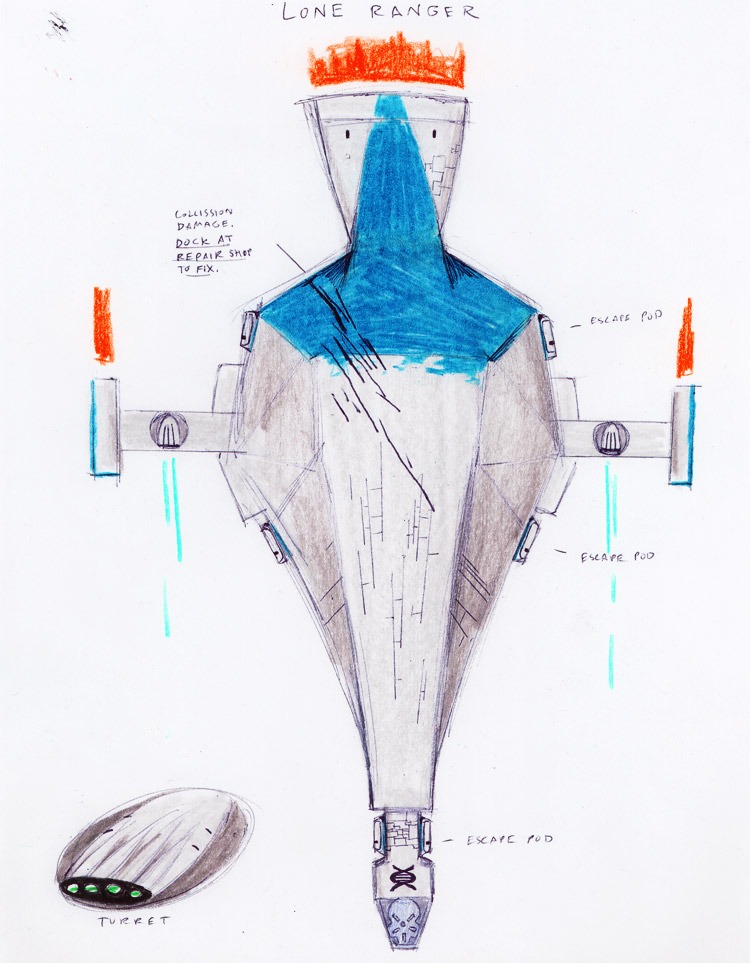 LONE RANGER
COLLISSION
DAMAGE.
DOCK AT
REPAIR SHOP
TO FIX.
ESCAPE POD
ESCAPE POD
ESCAPE POD
TURRET